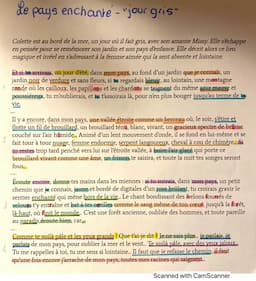 Le pays enchanté - "jour gris"
Colette est au bord de la mer, un jour où il fait gris, avec son amante Missy. Elle s'échappe
en pensée pour se remémorer son jardin et son pays d'enfance. Elle décrit alors ce lieu
magique et irréel en s'adressant à la femme aimée qui la sent absente et lointaine
Et si tu arrivais, un jour d'été, dans mon pays, au fond d'un jardin que je connais, un
jardin noir de verdure et sans fleurs, si tu regardais bleuir, au lointain, une montagne
ronde où les cailloux, les papillons et les chardons se teignent du même azur mauve et
poussiéreux, tu m'oublierais, et tu t'assoirais là, pour n'en plus bouger jusqu'au terme de ta
vie.
Il y a encore, dans mon pays, une vallée étroite comme un berceau où, le soir, s'étire et
flotte un fil de brouillard, un brouillard ténu, blanc, vivant, un gracieux spectre de brume
couché sur l'air humide... Animé d'un lent mouvement d'onde, il se fond en lui-même et se
fait tour à tour nuage, femme endormie, serpent langoureux, cheval à cou de chimère... Si
tu restes trop tard penché vers lui sur l'étroite vallée, à boire l'air glacé qui porte ce
brouillard vivant comme une âme, un frisson te saisira, et toute la nuit tes songes seront
fous...
Écoute encore, donne tes mains dans les miennes : si tu suivais, dans mon pays, un petit
chemin que je connais, jaune et bordé de digitales d'un rose brûlant, tu croirais gravir le
sentier enchanté qui mène hors de la vie... Le chant bondissant des frelons fourrés de
velours t'y entraîne et bat à tes oreilles comme le sang même de ton cœur, jusqu'à la forêt,
là-haut, où finit le monde... C'est une forêt ancienne, oubliée des hommes, et toute pareille
au paradis, écoute bien, car...
Comme te voilà pâle et les yeux grands ! Que t'ai-je dit ? Je ne sais plus... je parlais, je
parlais de mon pays, pour oublier la mer et le vent... Te voilà pâle, avec des yeux jaloux...
Tu me rappelles à toi, tu me sens si lointaine... Il faut que je refasse le chemin, il faut
qu'une fois encore j'arrache, de mon pays, toutes mes racines qui saignent...
Scanned with CamScanner